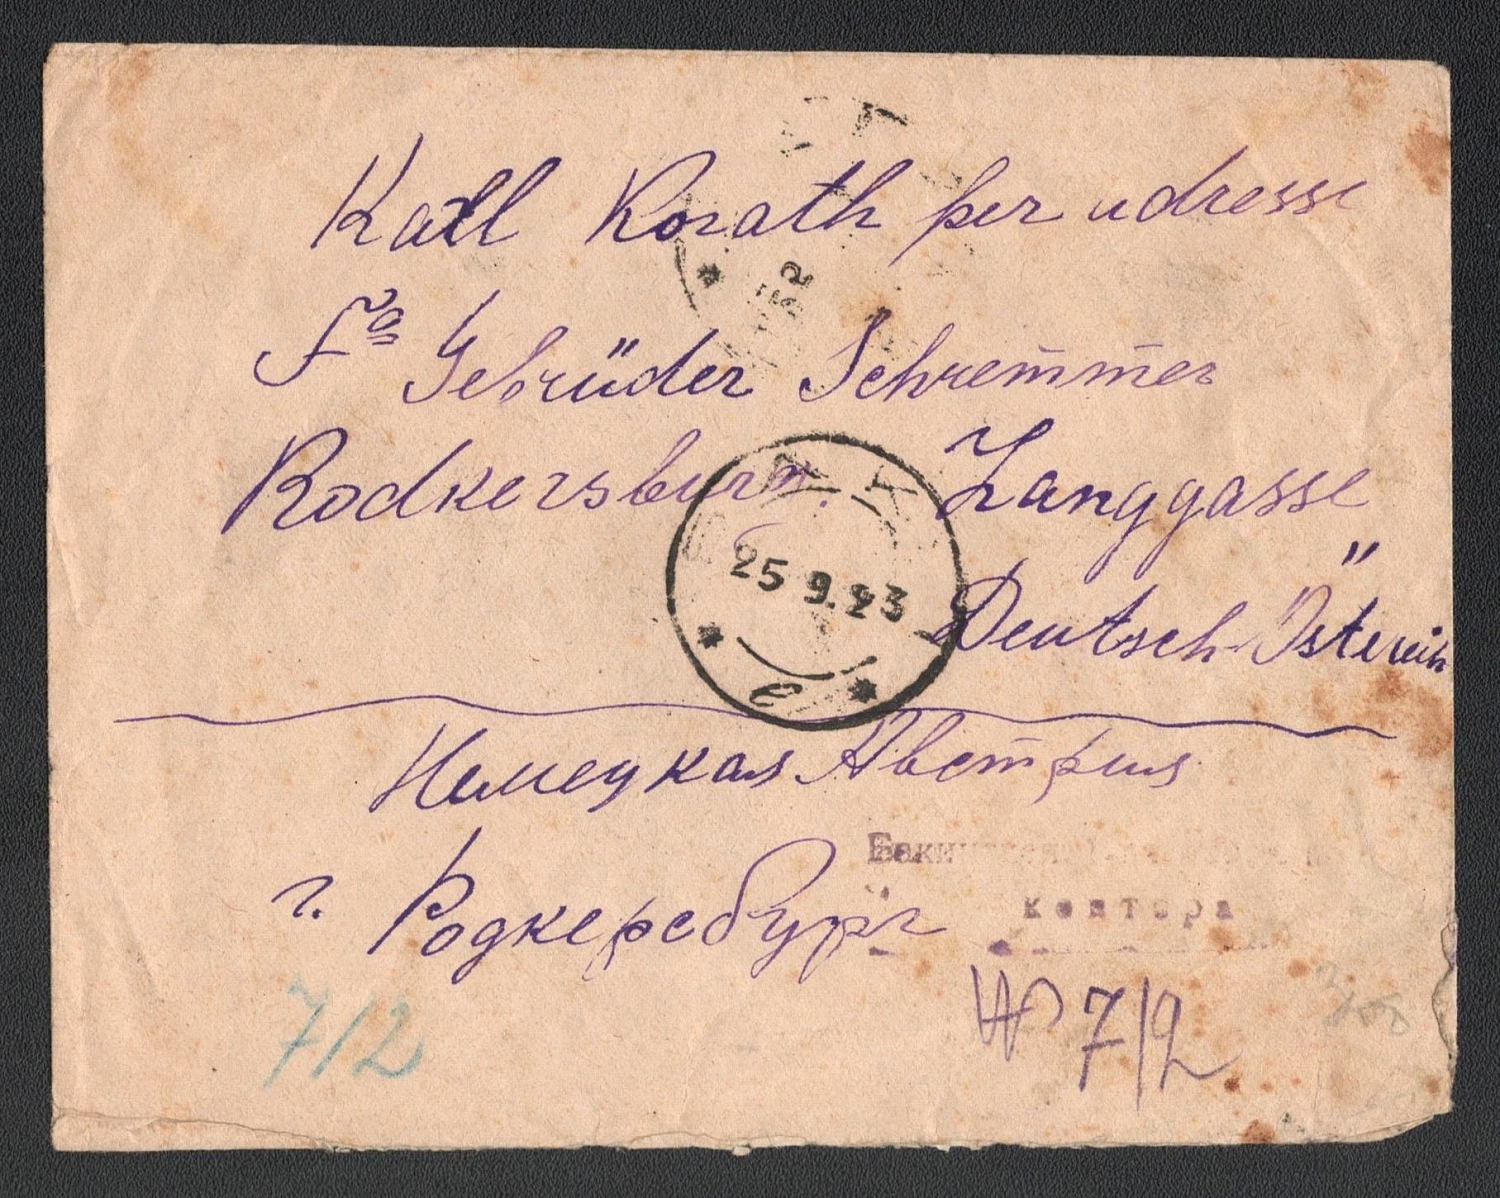 Karl Korath per adresse
Fa Gebrüder Schremmer
Rodkersburg. Langgasse
25 9.23
Deutsch-Österreich
е
Немецкая Австрия
г. Родкерсбург
Бакинская
контора
№ 7/2
7/2